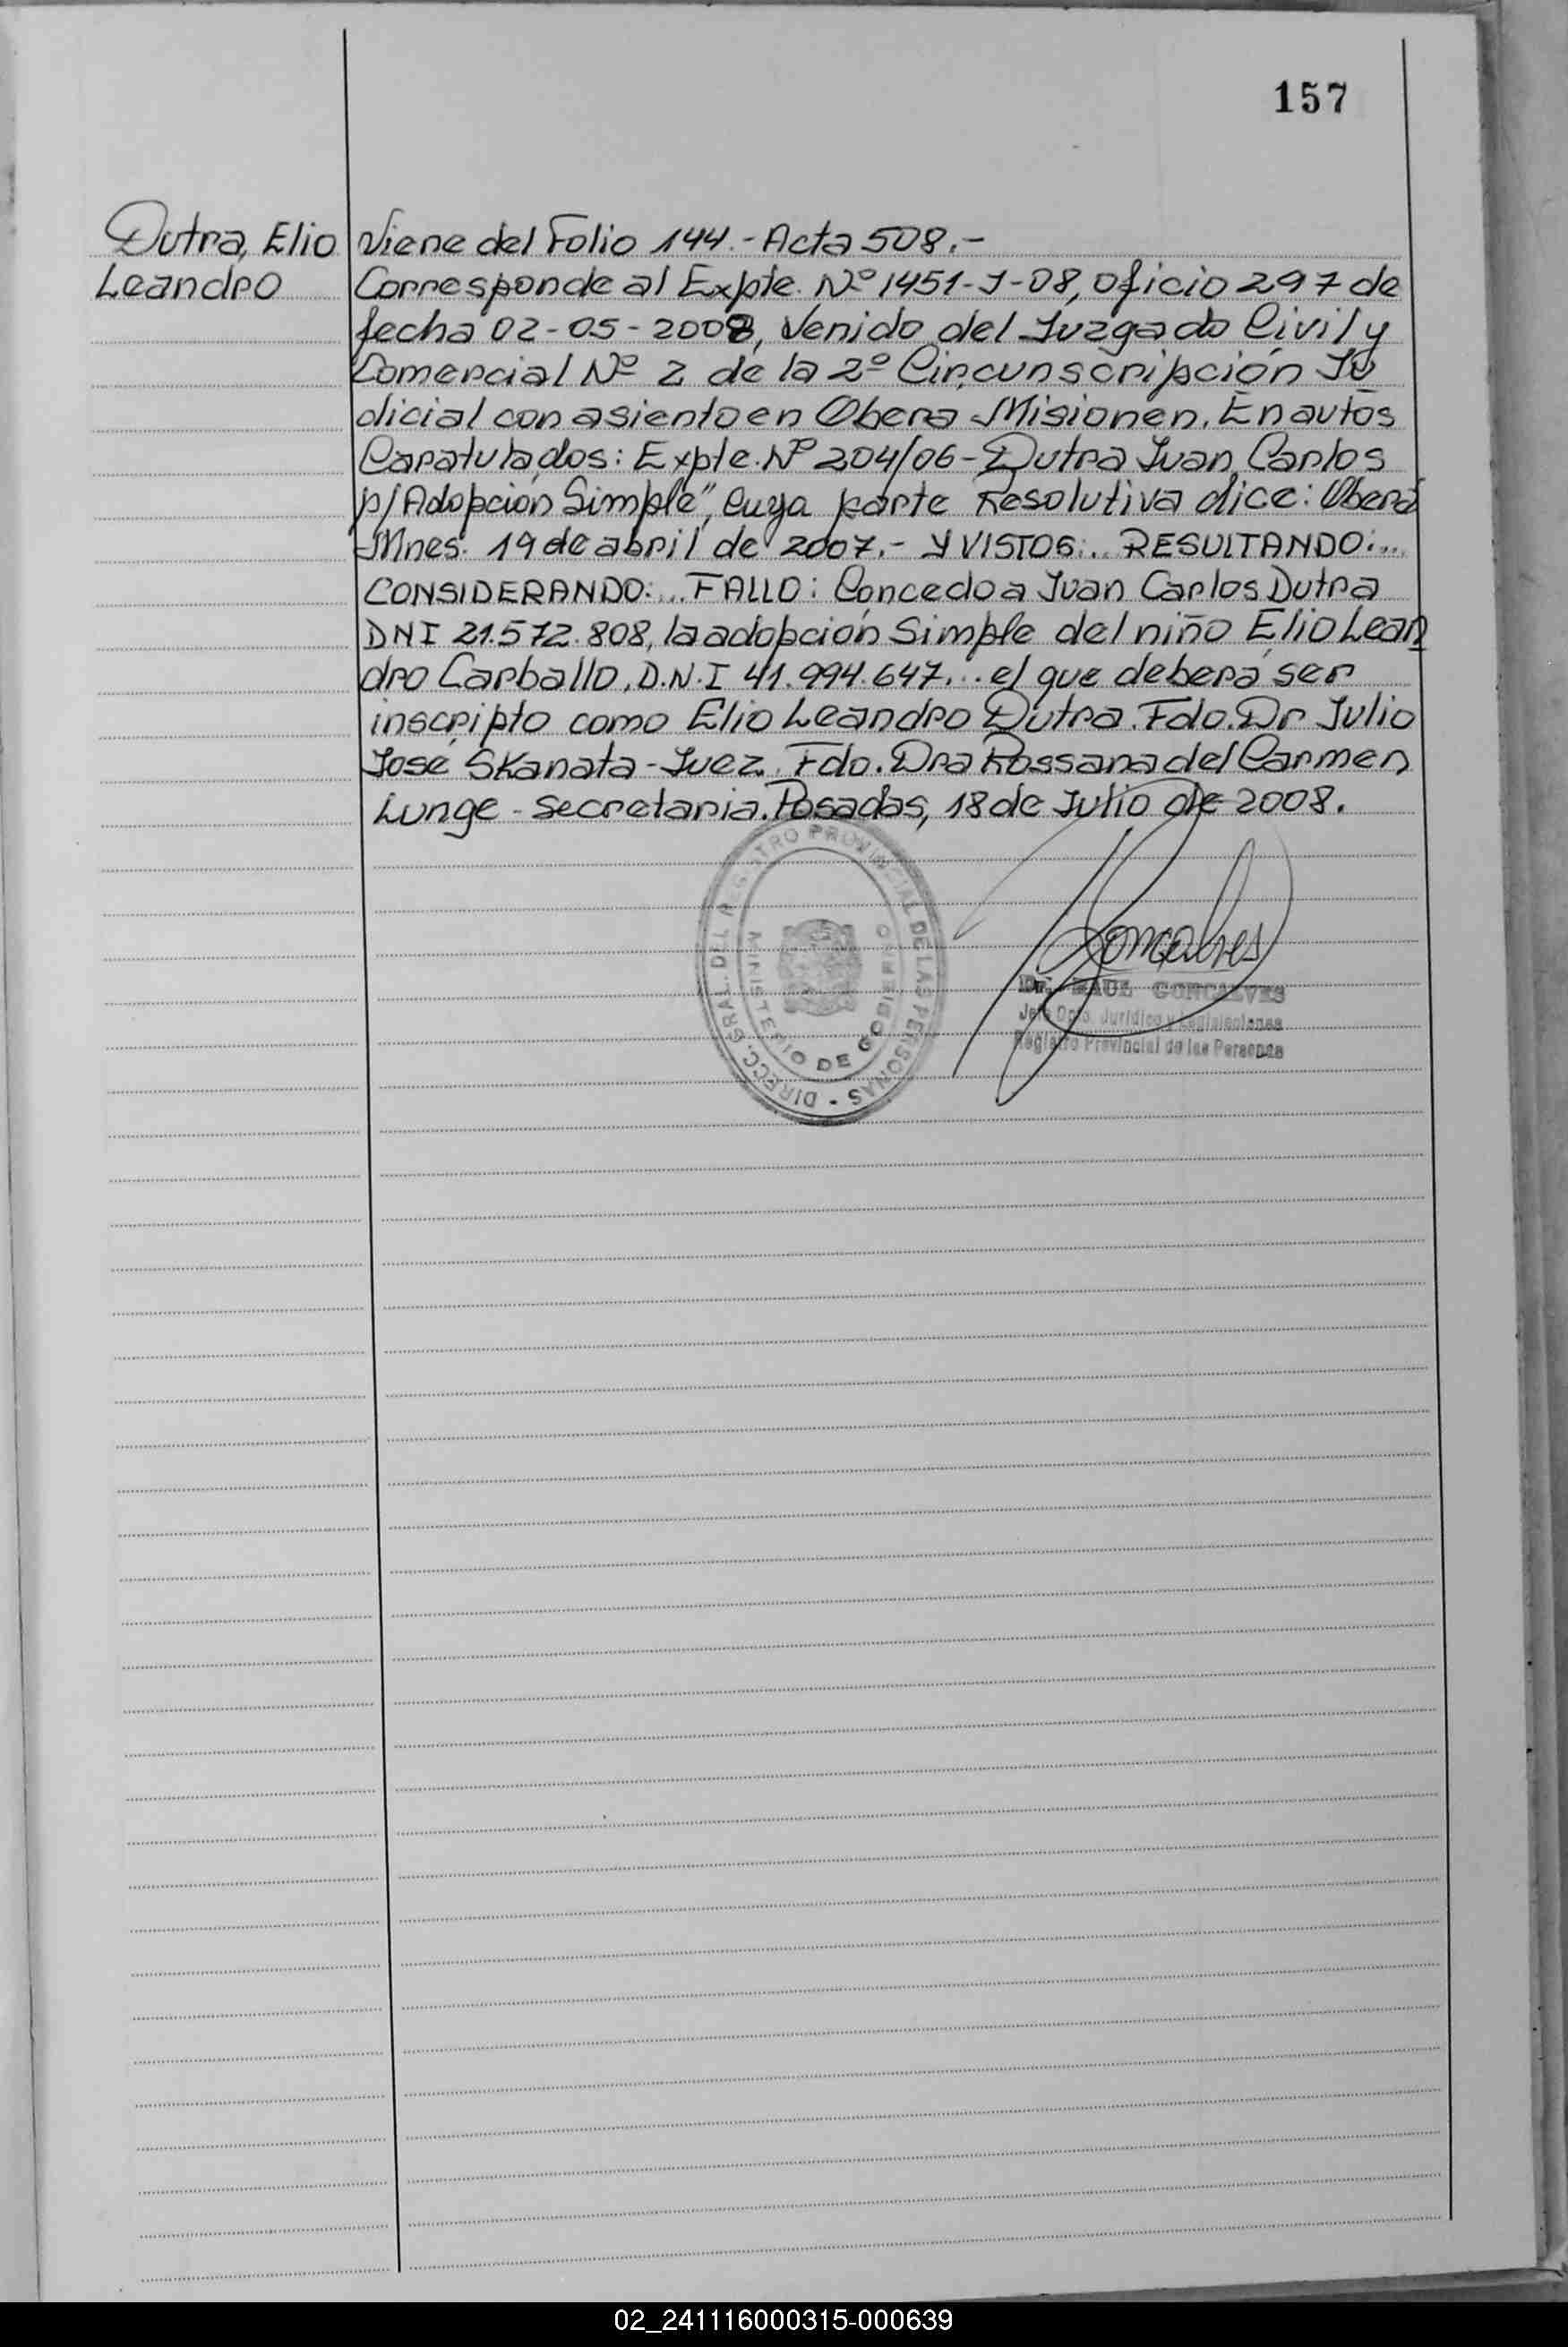 157
Dutra, Elio
Leandro
Viene del Folio 144.- Acta 508.-
Corresponde al Expte. Nº 1451-J-08, oficio 297 de
fecha 02-05-2008, Venido del Juzgado Civil y
Comercial Nº 2 de la 2º Circunscripción Ju
dicial con asiento en Obera Misionen. En autos
Caratulados: Expte. Nº 204/06 - Dutra Juan Carlos
p/ Adopción Simple", Cuya parte Resolutiva dice: Oberá
Mnes. 19 de abril de 2007.- Y VISTOS:.. RESULTANDO:...
CONSIDERANDO:... FALLO: Concedo a Juan Carlos Dutra
DNI 21.572.808, la adopción Simple del niño Elio Lean
dro Carballo, D.N.I 41.994.647... el que deberá ser
inscripto como Elio Leandro Dutra. Fdo. Dr Julio
José Skanata - Juez. Fdo. Dra Rossana del Carmen
Lunge - secretaria. Posadas, 18 de Julio de 2008.
DIRECC. GRAL. DEL REGISTRO PROVINCIAL DE LAS PERSONAS -
MINISTERIO DE GOBIERNO
Goncalves
Dr. RAUL GONCALVES
Jefe Dpto. Jurídico y Legislaciones
Registro Provincial de las Personas
02_241116000315-000639